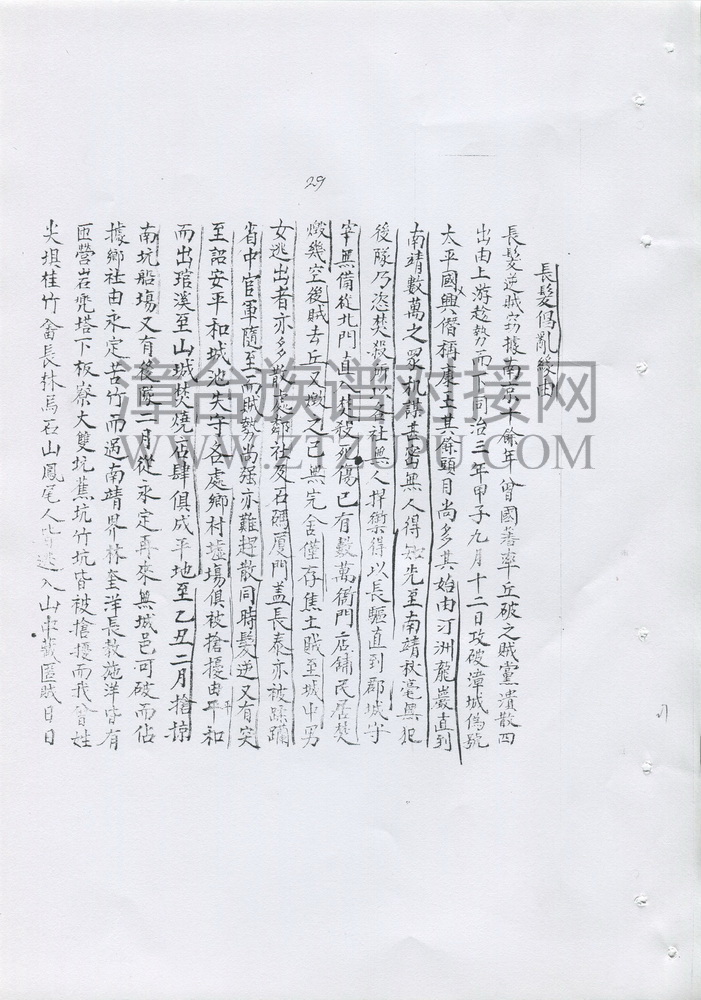 29
長髮倡亂緣由
長髮逆賊窃據南京十餘年曾國蕃率兵破之賊黨潰散四
出由上游趁勢而下同治三年甲子九月十二日攻破漳城僞號
太平國興僭稱康王其餘頭目尚多其始由汀洲龍巖直到
南靖數萬之眾机謀甚密無人得知先至南靖秋毫無犯
後隊乃恣焚殺所以各社無人捍衛得以長驅直到郡城守
宰無備從北門直入焚殺死傷已有數萬衙門店舖民居焚
燬幾空後賊去兵又燬之已無完舍僅存焦土賊至城中男
女逃出者亦多散處鄉社及石碼厦門盖長泰亦被蹂躪
省中官軍隨至而賊勢尚强亦難趕散同時髮逆又有突
至詔安平和城池失守各處鄉村墟塲俱被搶擾由平和
而出琯溪至山城焚燒店肆俱成平地至乙丑二月搶掠
南坑船塲又有後隊二月從永定再來無城邑可破而佔
據鄉社由永定苦竹而過南靖界林奎洋長教施洋皆有
匝營岩兜塔下板寮大双坑蕉坑竹坑皆被搶擾而我曾姓
尖垻桂竹畬長林烏石山鳳尾人皆逃入山中藏匿賊日日
漳台族谱对接网
WWW.ZTZUPU.COM